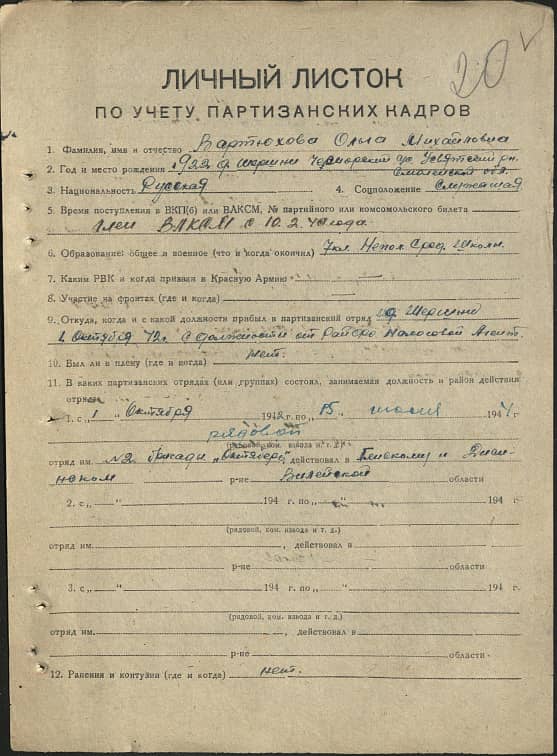 20
ЛИЧНЫЙ ЛИСТОК
ПО УЧЕТУ ПАРТИЗАНСКИХ КАДРОВ
1. Фамилия, имя и отчество Вартюхова Ольга Михайловна
2. Год и место рождения 1922
Смоленской обл.
3. Национальность Русская 4. Соцположение Служащая
5. Время поступления в ВКП(б) или ВЛКСМ, № партийного или комсомольского билета
Член ВЛКСМ с 10.2.40 года
6. Образование: общее и военное (что и когда окончил) 7 кл. Непол. Сред. Школы
7. Каким РВК и когда призван в Красную Армию
8. Участие на фронтах (где и когда)
9. Откуда, когда и с какой должности прибыл в партизанский отряд
1 Октября 42 г. с должности Налоговой Агент.
10. Был ли в плену (где и когда) нет.
11. В каких партизанских отрядах (или группах) состоял, занимаемая должность и район действия
отряда
1. с „ 1 “ Октября 1942 г. по „ 15 “ июля 1944 г.
рядовой
(рядовой, ком. взвода и т. д.)
отряд им. №2 бригады „Октябрь“, действовал в
р-не Вилейской области
2. с „ “ 194 г. по „ “ 194 г.
(рядовой, ком. взвода и т. д.)
отряд им. , действовал в
р-не области
3. с „ “ 194 г. по „ “ 194 г.
(рядовой, ком. взвода и т. д.)
отряд им. , действовал в
р-не области
12. Ранения и контузии (где и когда) нет.